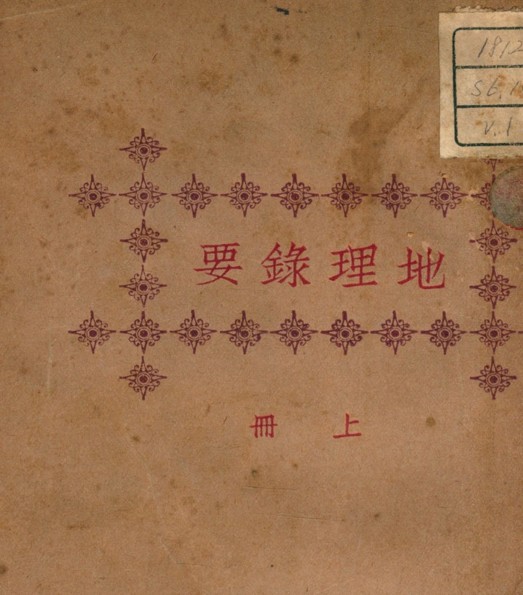 地理錄要
上冊
1812
v.1